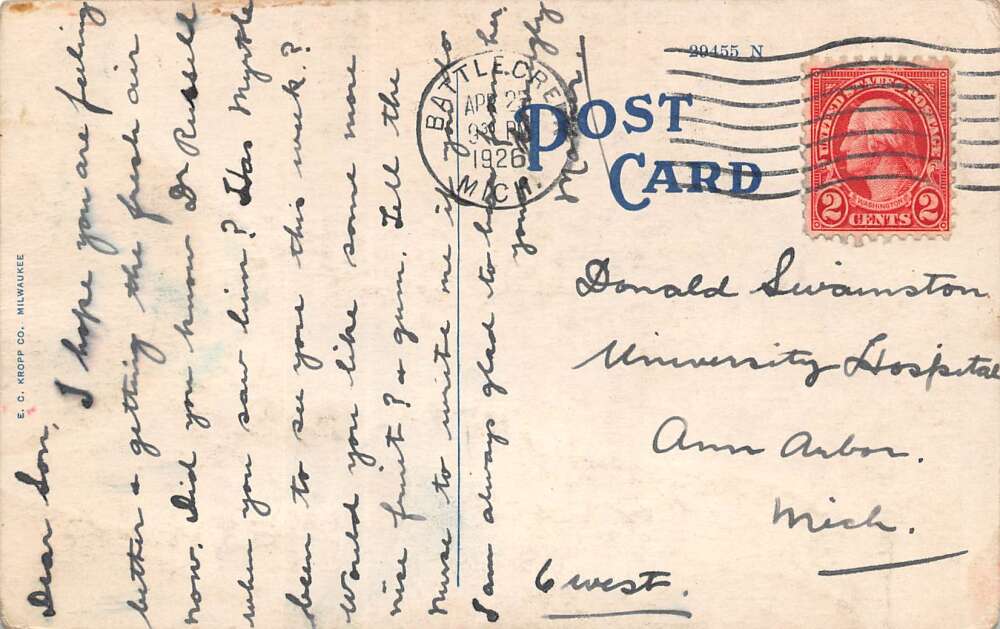 Dear Son,
I hope you are feeling
better & getting the fresh air
now. Did you know Dr Russell
when you saw him? Has Myrtle
been to see you this week?
Would you like some more
nice fruit? & gum. Tell the
nurse to write me if you do
I am always glad to hear from her.
your
Mother
POST
CARD
29455 N
BATTLE CREEK
APR 2
1926
MICH.
UNITED STATES POSTAGE
WASHINGTON
2 CENTS 2
Donald Swainston
University Hospital
Ann Arbor.
Mich.
6 west.
E. C. KROPP CO. MILWAUKEE